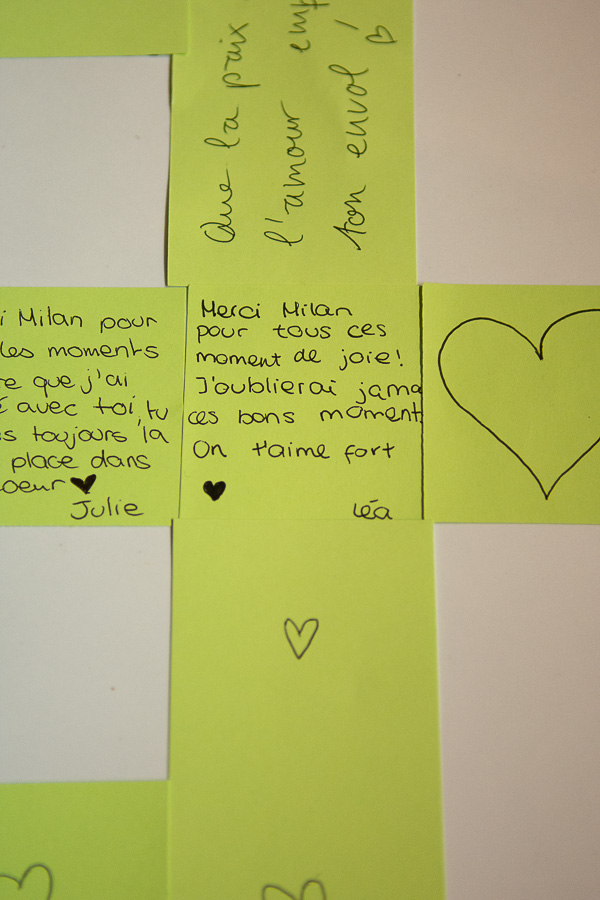 Que la paix
l'amour
ton envol
Milan pour
les moments
que j'ai
avec toi, tu
toujours la
place dans
Julie
Merci Milan
pour tous ces
moment de joie!
J'oublierai jama
ces bons moment
On t'aime fort
Léa